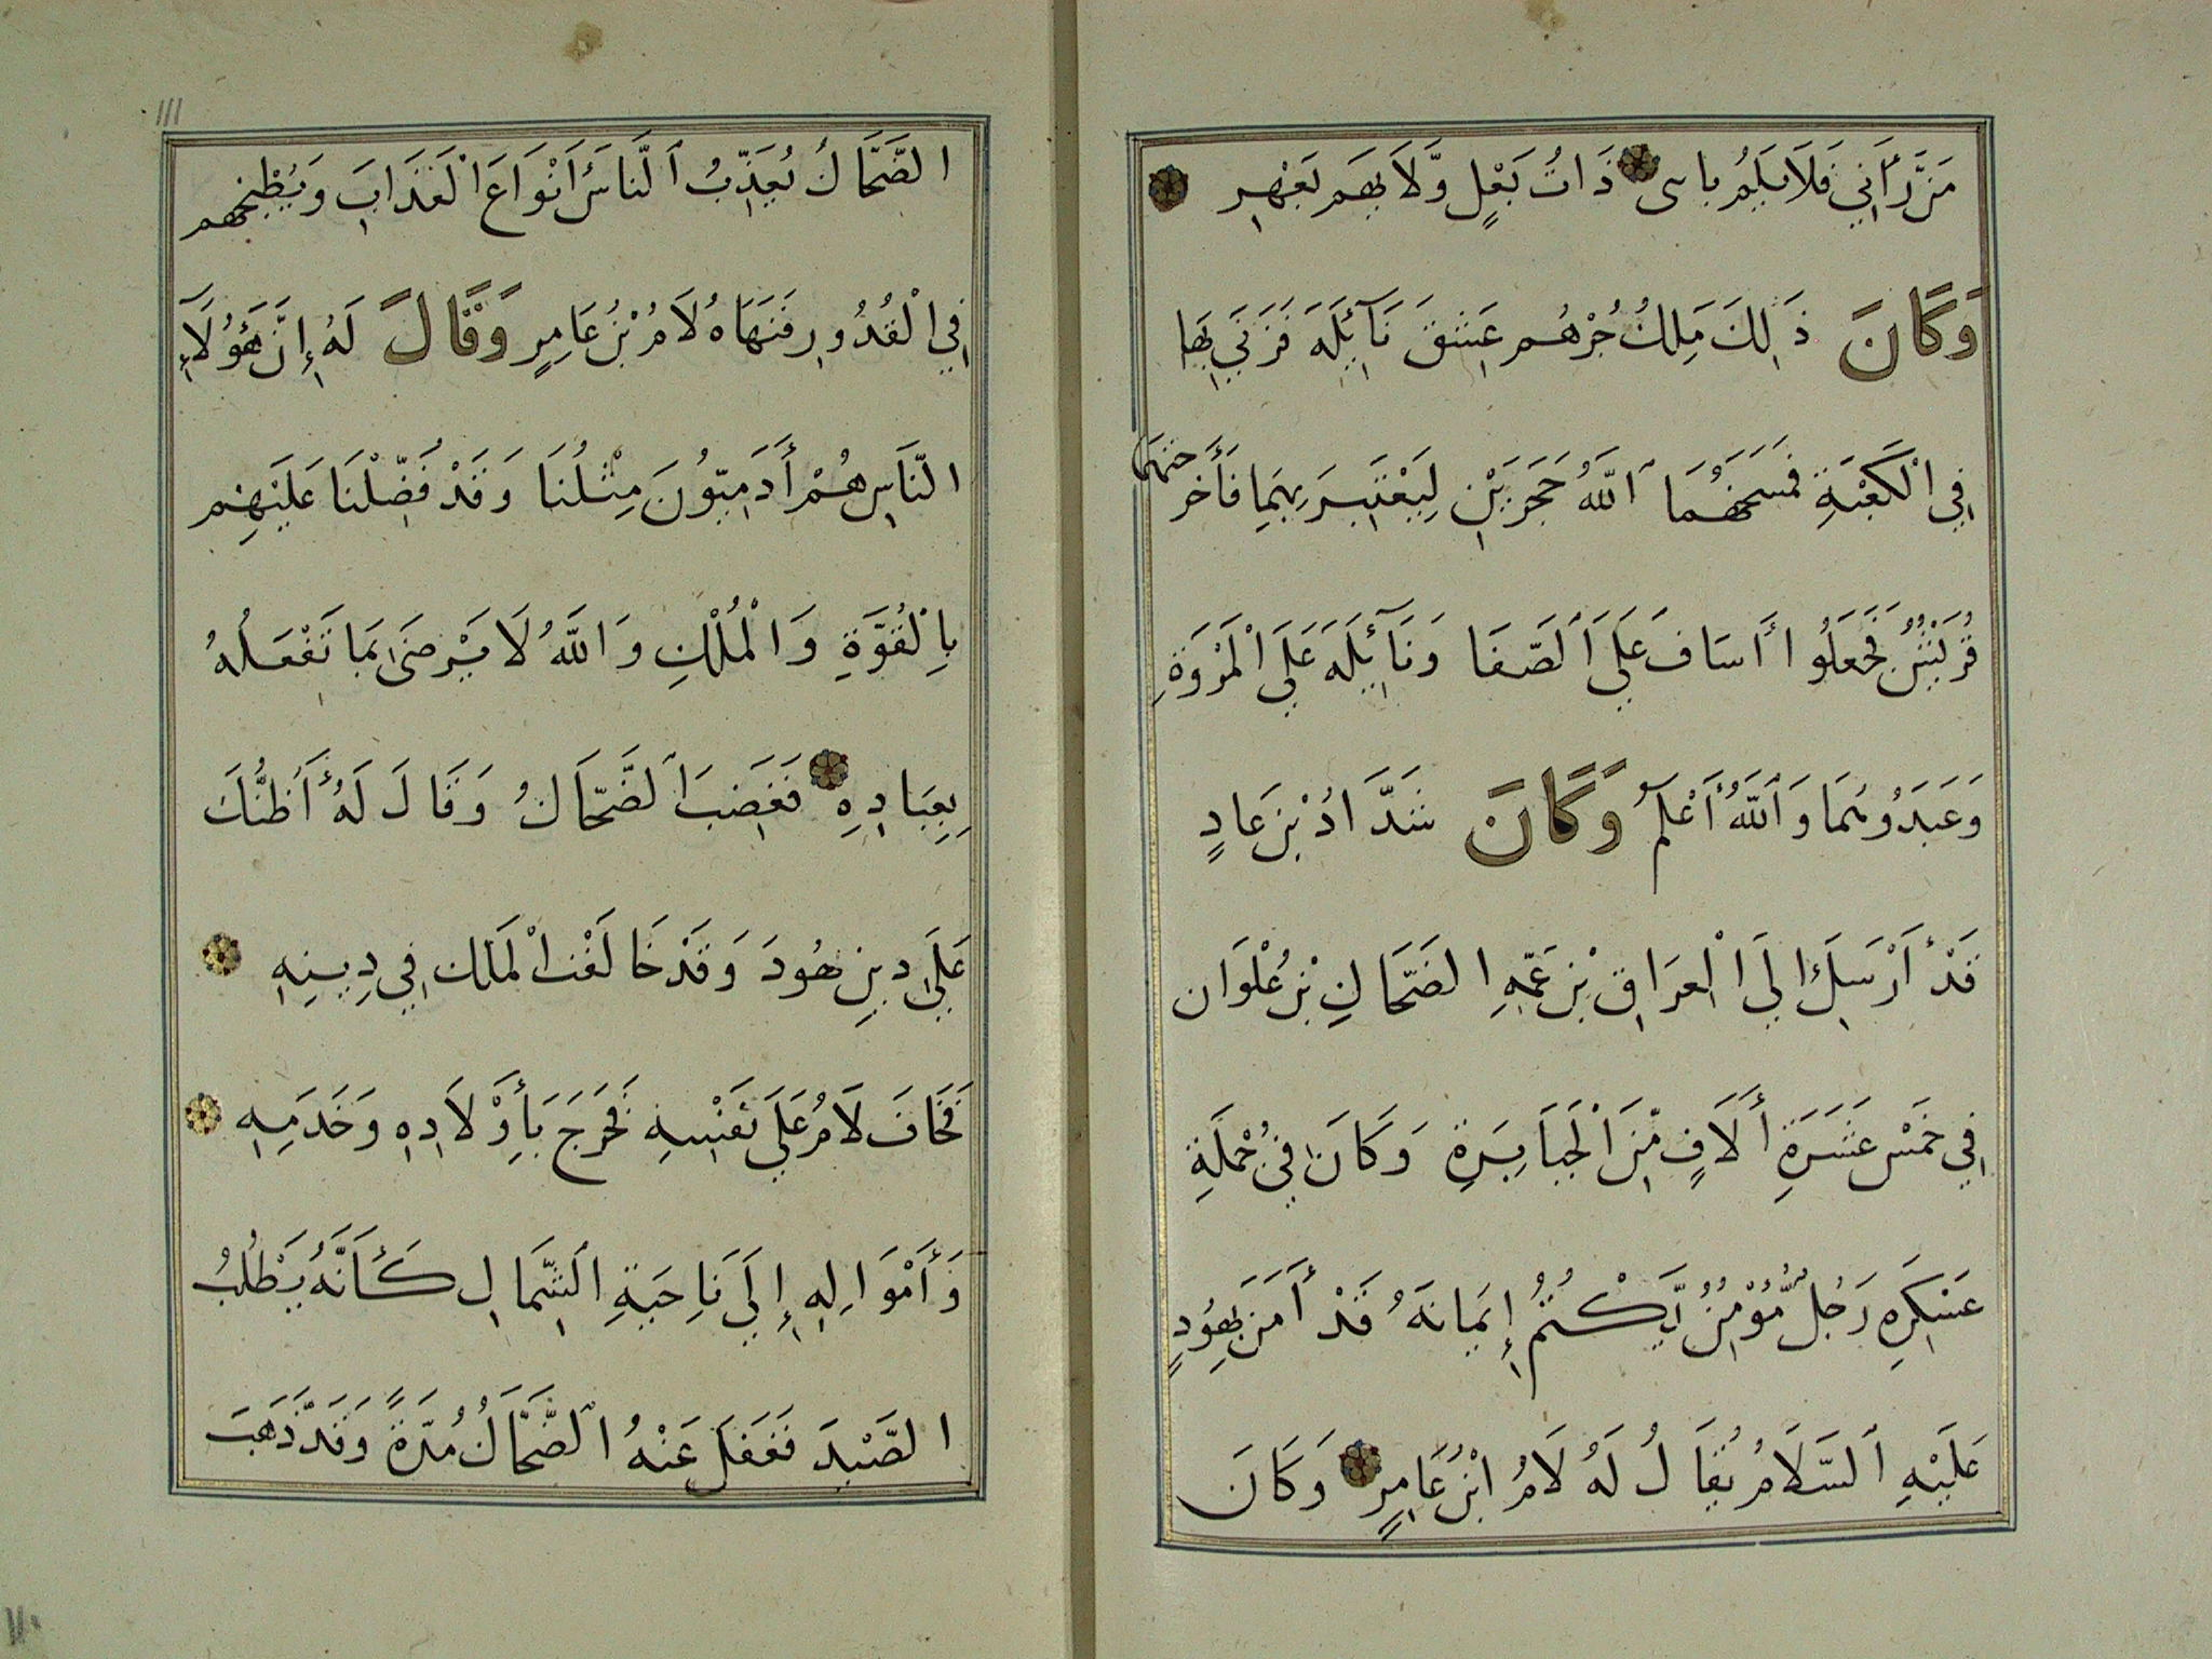 مَنْ رَّأَنِي فَلَا يَلُمْ بِاسى ذَاتُ بَعْلٍ وَّلَا بِهَم بَعْهِرِ
وَكَانَ ذَلِكَ مَلِكُ جُرْهُم عَشِقَ نَآئِلَه فَزَنَي بِهَا
فِي الْكَعْبَةِ فَمَسَخَهُمَا ٱللَّهُ حَجَرَيْنِ لِيَعْتَبِرَ بِهِمَا فَأَخَرجتهما
قُرَيْشٌ فَجَعَلُوا أَسَافَ عَلَي ٱلصَّفَا وَنَآئِلَه عَلَي الْمَرْوَةِ
وَعَبَدُوهُمَا وَٱللَّهُ أَعْلَمُ وَكَانَ شَدَّادُ بْنِ عَادٍ
قَدْ أَرْسَلَ الَي الْعِرَاقِ بْنِ عَمِّهِ الضَحَّاكِ بْنِ عُلْوَان
فِي خَمْس عَشَرَةِ أَلَافٍ مِّنَ الْجَبَابِرَةِ وَكَانَ فِي جُمْلَةِ
عَسْكَرِهِ رَجُلٌ مُّؤْمِنٌ يَّكْتُمُ إِيمَانَهُ قَدْ أَمَنَ بِهُودٍ
عَلَيْهِ ٱلسَّلَامُ يُقَالُ لَهُ لَامُ ابْنُ عَامِرٍ وَكَانَ
111
الضَّحَّاكُ يُعَذِّبُ ٱلنَّاسَ أَنْوَاعَ الْعَذَابَ وَيُطْبِخُهم
فِي الْقُدُورِ فَنَهَاهُ لَامُ بْنُ عَامِرٍ وَقَالَ لَهُ إِنَّ هَؤُلَآءِ
النَّاسِ هُمْ أَدَمِيّوُنَ مِثْلُنَا وَقَدْ فَضِّلْنَا عَلَيْهِم
بِالْقُوَّةِ وَالْمُلْكِ وَاللَّهُ لَا يَرْضَى بِمَا تَفْعَلُهُ
بِعِبَادِهِ فَغَضِبَ ٱلضَّحَّاكُ وَقَالَ لَهُ أَظُنُّكَ
عَلَي دِينِ هُودَ وَقَدْ خَالَفْتَ الْمَلك فِي دِينِهِ
فَخَافَ لَامُ عَلَي نَفْسِهِ فَخَرَجَ بَأِوْلَادِهِ وَخَدَمِهِ
وَأَمْوَالِهِ إِلَي نَاحِيَةِ الشِّمَالِ كَأَنَّهُ يَطْلُبُ
الصَّيْدَ فَغَفَلَ عَنْهُ ٱلضَّحَّاكُ مُدَّةً وَقَدْ ذَهَبَ